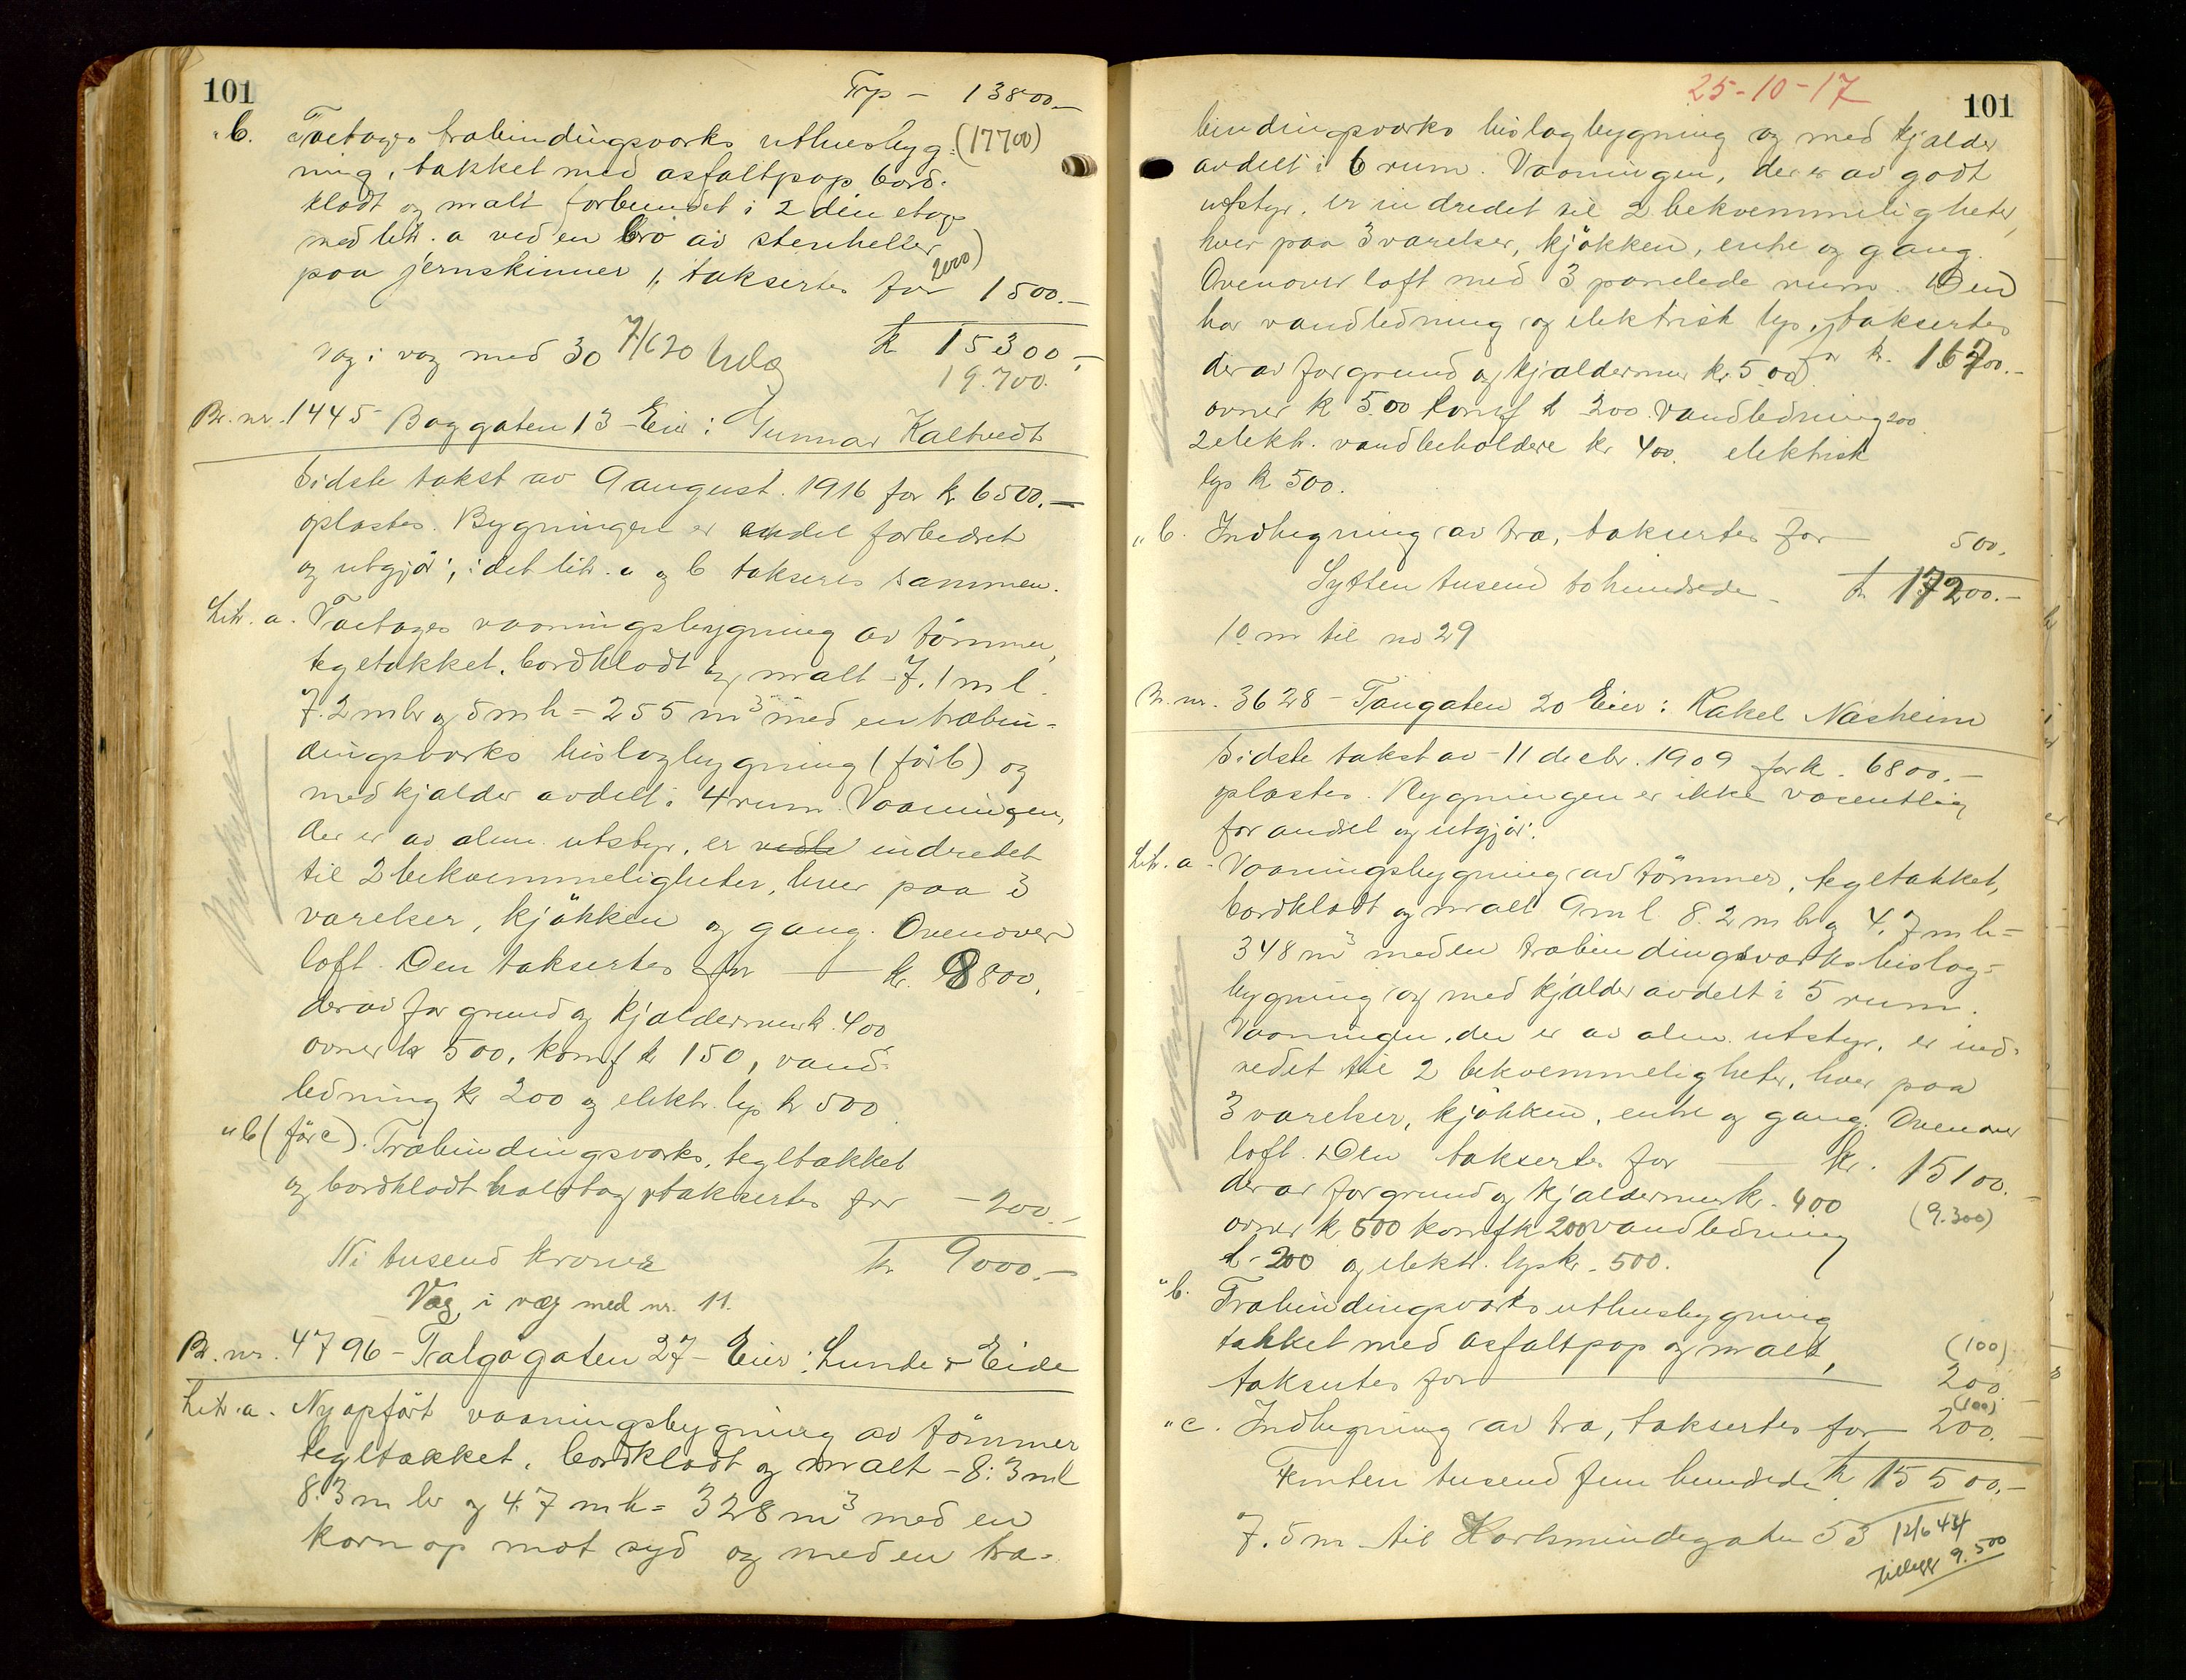 101
Trp - 13800.-
"b. Toetages træbindingsværks uthusbyg- (17700)
ning, tækket med asfaltpap, bord-
klædt og malt forbundet i 2 den etage
med litr. a ved en bro av stenheller
paa jernskinner, taksertes for 1500.- 2000)
kr 15300,-
Væg i væg med 30 7/6 20
19.700.
Br. nr. 1445 Baggaten 13 - Eier: Gunnar Kaltvedt
Sidste takst av 9 august 1916 for kr. 6500.-
oplæstes. Bygningen er endel forbedret
og utgjør; idet litr. a og b takseres sammen.
Litr. a. Toetages vaaningsbygning av tömmer,
tegltækket, bordklædt og malt - 7.1 m l.
7.2 m br og 5 m h = 255 m3 med en træbin-
dingsværks bislagbygning (för b) og
med kjælder avdelt i 4 rum. Vaaningen,
der er av alm. utstyr, er indredet
til 2 bekvemmeligheter, hver paa 3
værelser, kjökken og gang. Ovenover
loft. Den taksertes for - kr. 8800.
derav for grund og kjældermur k. 400
ovner kr 500, komf kr 150, vand-
ledning kr 200 og elektr. lys kr 500
"b (för c). Træbindingsværks, tegltækket
og bordklædt halvtag, taksertes for - 200.-
Ni tusend kroner kr 9000.-
Væg i væg med nr. 11.
Br. nr. 4796 - Tralgögaten 27 - Eier: Lunde & Eide
Litr. a. Nyopfört vaaningsbygning av tömmer
tegltækket, bordklædt og malt - 8.3 m l
8.3 m br og 4.7 m h = 328 m3 med en
kornop mot syd og med en træ-
25-10-17
101
bindingsværks bislagbygning og med kjælder
avdelt i 6 rum. Vaaningen, der er av godt
utstyr, er indredet til 2 bekvemmeligheter,
hver paa 3 værelser, kjökken, entre og gang.
Ovenover loft med 3 panelede rum. Den
har vandledning og elektrisk lys, taksertes
for kr. 16700.-
derav for grund og kjældermur kr. 500
ovner kr 500 komf kr 200 vandledning 200
2 elektr. vandbeholdere kr 400. elektrisk
lys kr 500.
"b. Indhegning av træ, taksertes for 500.
Sytten tusend to hundrede - kr 17200.-
10 m til no 29
Br. nr. 3628 - Tangaten 20 Eier: Rakel Næsheim
Sidste takst av - 11 decbr. 1909 for k. 6800.-
oplæstes. Bygningen er ikke væsentlig
forandret og utgjør:
Litr. a - Vaaningsbygning av tömmer, tegltækket,
bordklædt og malt 9 m l 8.2 m br og 4.7 m h =
348 m3 med en træbindingsværks bislag-
bygning og med kjælder avdelt i 5 rum.
Vaaningen, der er av alm. utstyr, er ind-
redet til 2 bekvemmeligheter, hver paa
3 værelser, kjökken, entre og gang. Ovenover
loft. Den taksertes for - kr. 15100.-
derav for grund og kjældermur kr. 400 (9.300)
ovner kr 500 komf kr 200 vandledning
kr 200 og elektr. lys kr. 500.
"b. Træbindingsværks uthusbygning
tækket med asfaltpap og malt, (100)
taksertes for 200.
"c. Indhegning av træ, taksertes for 200. - (100)
Femten tusend fem hundrede kr 15500.-
7.5 m til Karlsmindegaten 53 12/6 44
tillegg 9.500